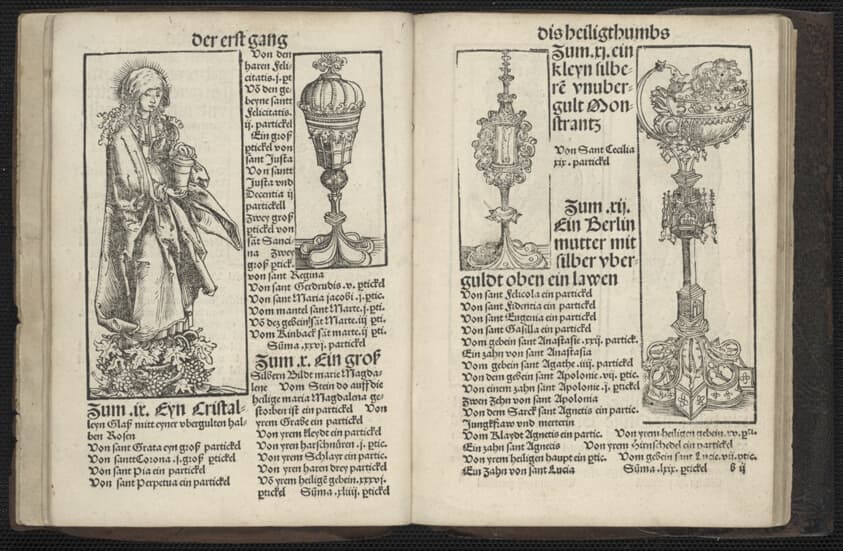 der erst gang
Zum .ix. Eyn Cristal-
leyn Glaß mitt eyner vbergulten hal-
ben Rosen
Von sant Grata eyn groß partickel
Von sannt Corona .j. groß pťickel
Von sant Pia ein partickel
Von sant Perpetua ein partickel
Von den
haren Feli-
citatis .j. pt
Võ den ge-
beyne santt
Felicitatis.
ij. partickel
Ein groß
pťickel von
sant Justa
Von santt
Justa vnd
Decentia ij
partickell
Zwey groß
pťickel von
sãt Sanci-
na Zwey
groß pťick.
von sant Regina
Von sant Gerdrudis .v. pťickel
Von sant Maria jacobi .j. ptic.
Vom mantel sant Marte .j. pti.
Võ dez gebein sãt Marte .iij pti.
Vom Kinback sãt marte .ij pti.
Sũma .xxvj. partickel
Zum .x. Ein groß
Silbern Bildt marie Magda-
lene Vom Stein do auff die
heilige maria Magdalena ge-
storben ist ein partickel Von
yrem Grabe ein partickel
Von yrem kleydt ein partickel
Von yren harschnüren .j. ptic.
Von yrem Schlayr ein partic.
Von yren haren drey partickel
Võ yrem heiligẽ gebein .xxxvj.
pťickel Sũma .xliiij. pťickel
dis heiligthumbs
Zum .xj. ein
kleyn silbe-
rẽ vnuber-
gult Mon-
strantz
Von Sant Cecilia
xix. partickel
Zum .xij.
Ein Berlin
mutter mit
silber vber-
guldt oben ein lawen
Von sant Felicola ein partickel
Von sant Fidentia ein partickel
Von sant Eugenia ein partickel
Von sant Gasilla ein partickel
Vom gebein sant Anastasie .xxij. partick.
Ein zahn von sant Anastasia
Vom gebein sant Agathe .iiij. partickel
Von dem gebein sant Apolonie .vij. ptic.
Von einem zahn sant Apolonie .j. pťickel
Zwen Zehn von sant Apolonia
Von dem Sarck sant Agnetis ein partic.
Jungkfraw vnd merterin
Vom Klaydt Agnetis ein partic.
Ein zahn sant Agnetis
Von yrem heiligen haupt ein ptic.
Ein Zahn von sant Lucia
Von yrem heiligen gebein .xv. pti.
Von yrem Hirnschedel ein partickel
Vom gebein sant Lucie .vii. ptic.
Sũma .lxix. pťickel
b ij